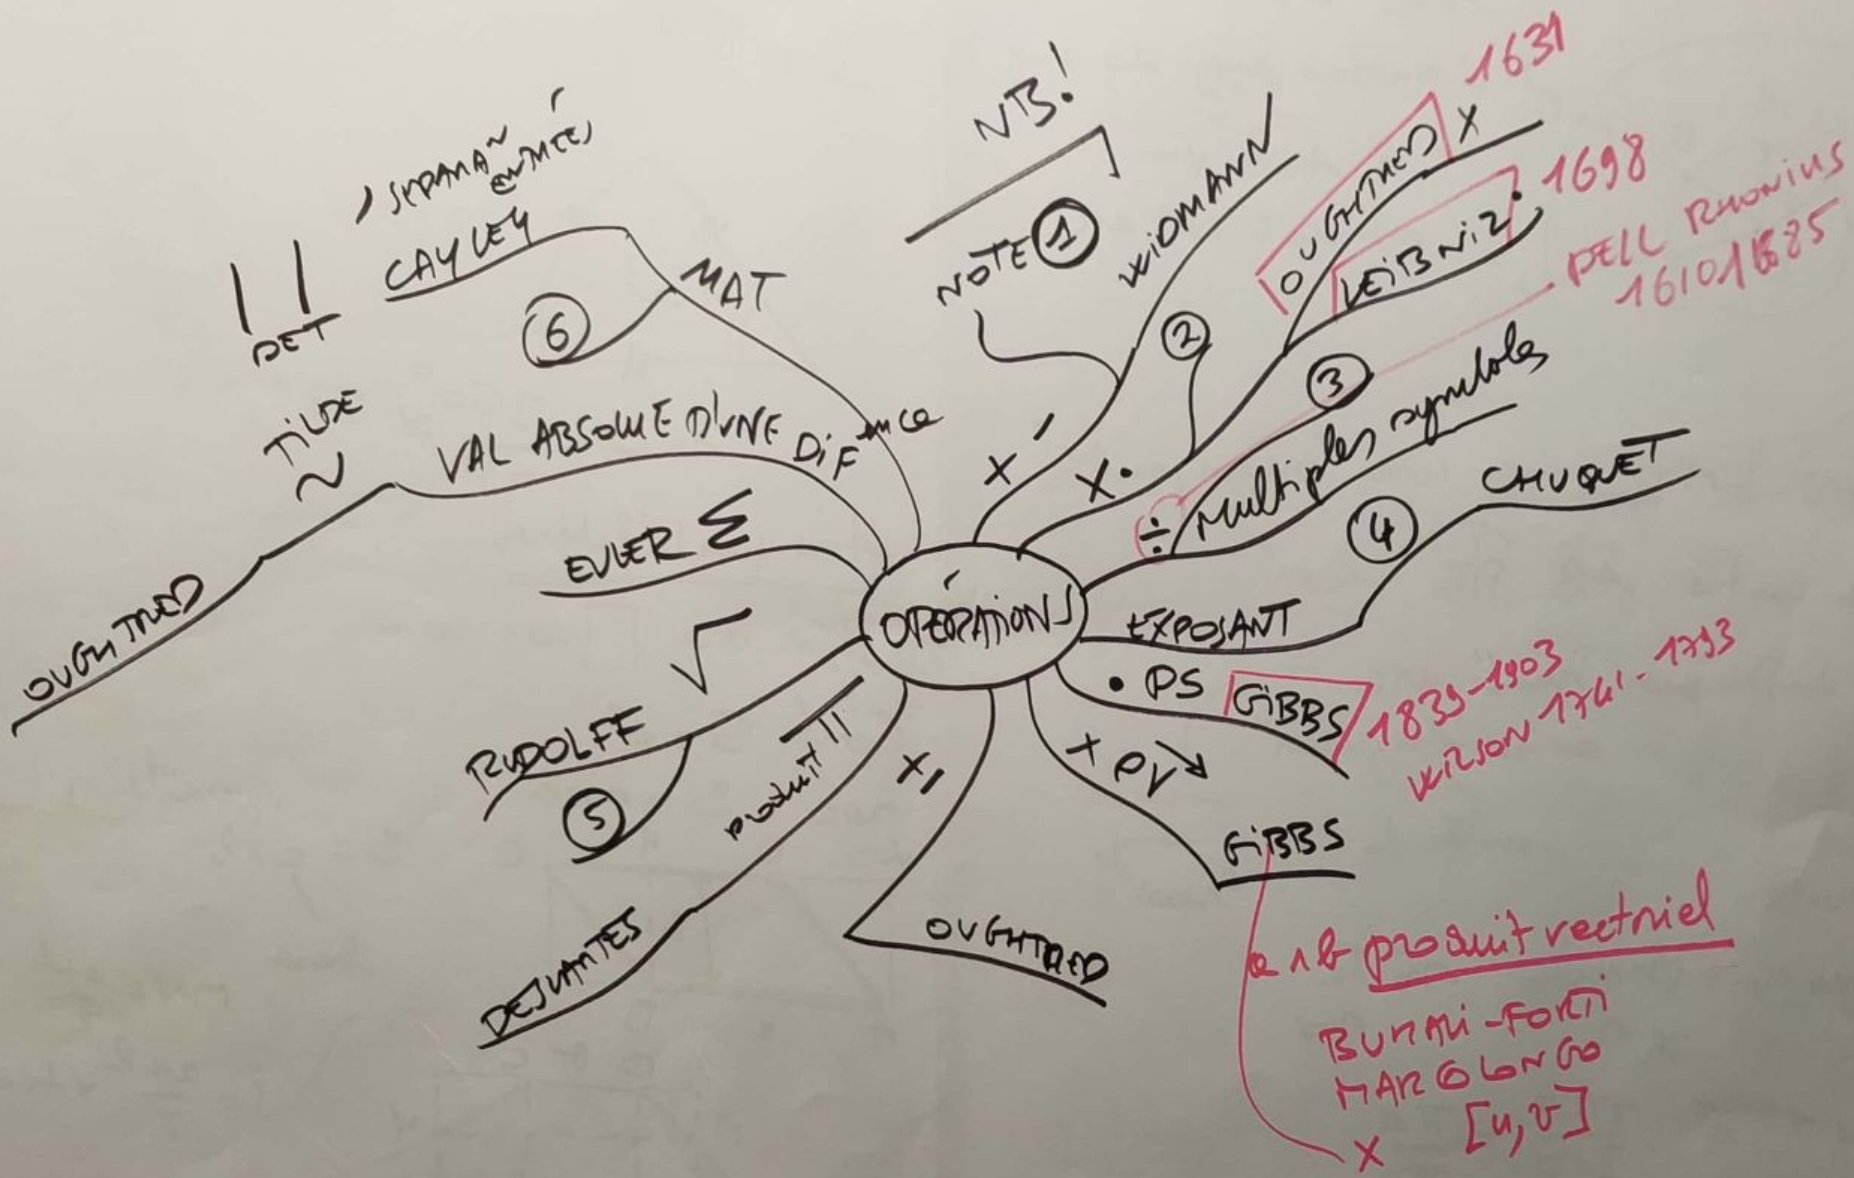 NB!
NOTE 1
WIDMANN
+ -
OUGHTRED X
1631
LEIBNIZ .
1698
2
X .
3
PELL RHONIUS
÷ Multiples symboles
4
CHUQUET
EXPOSANT
. PS GIBBS
1839-1903
WILSON 1741-1793
X PV
GIBBS
a ∧ b produit vectoriel
BURALI-FORTI
MARCOLONGO
[u,v]
X
OUGHTRED
produit
DESCARTES
√
RUDOLFF
5
EULER Σ
VAL ABSOLUE D'UNE DIFence
TILDE
~
OUGHTRED
MAT
6
CAYLEY
| |
DET
OPÉRATIONS